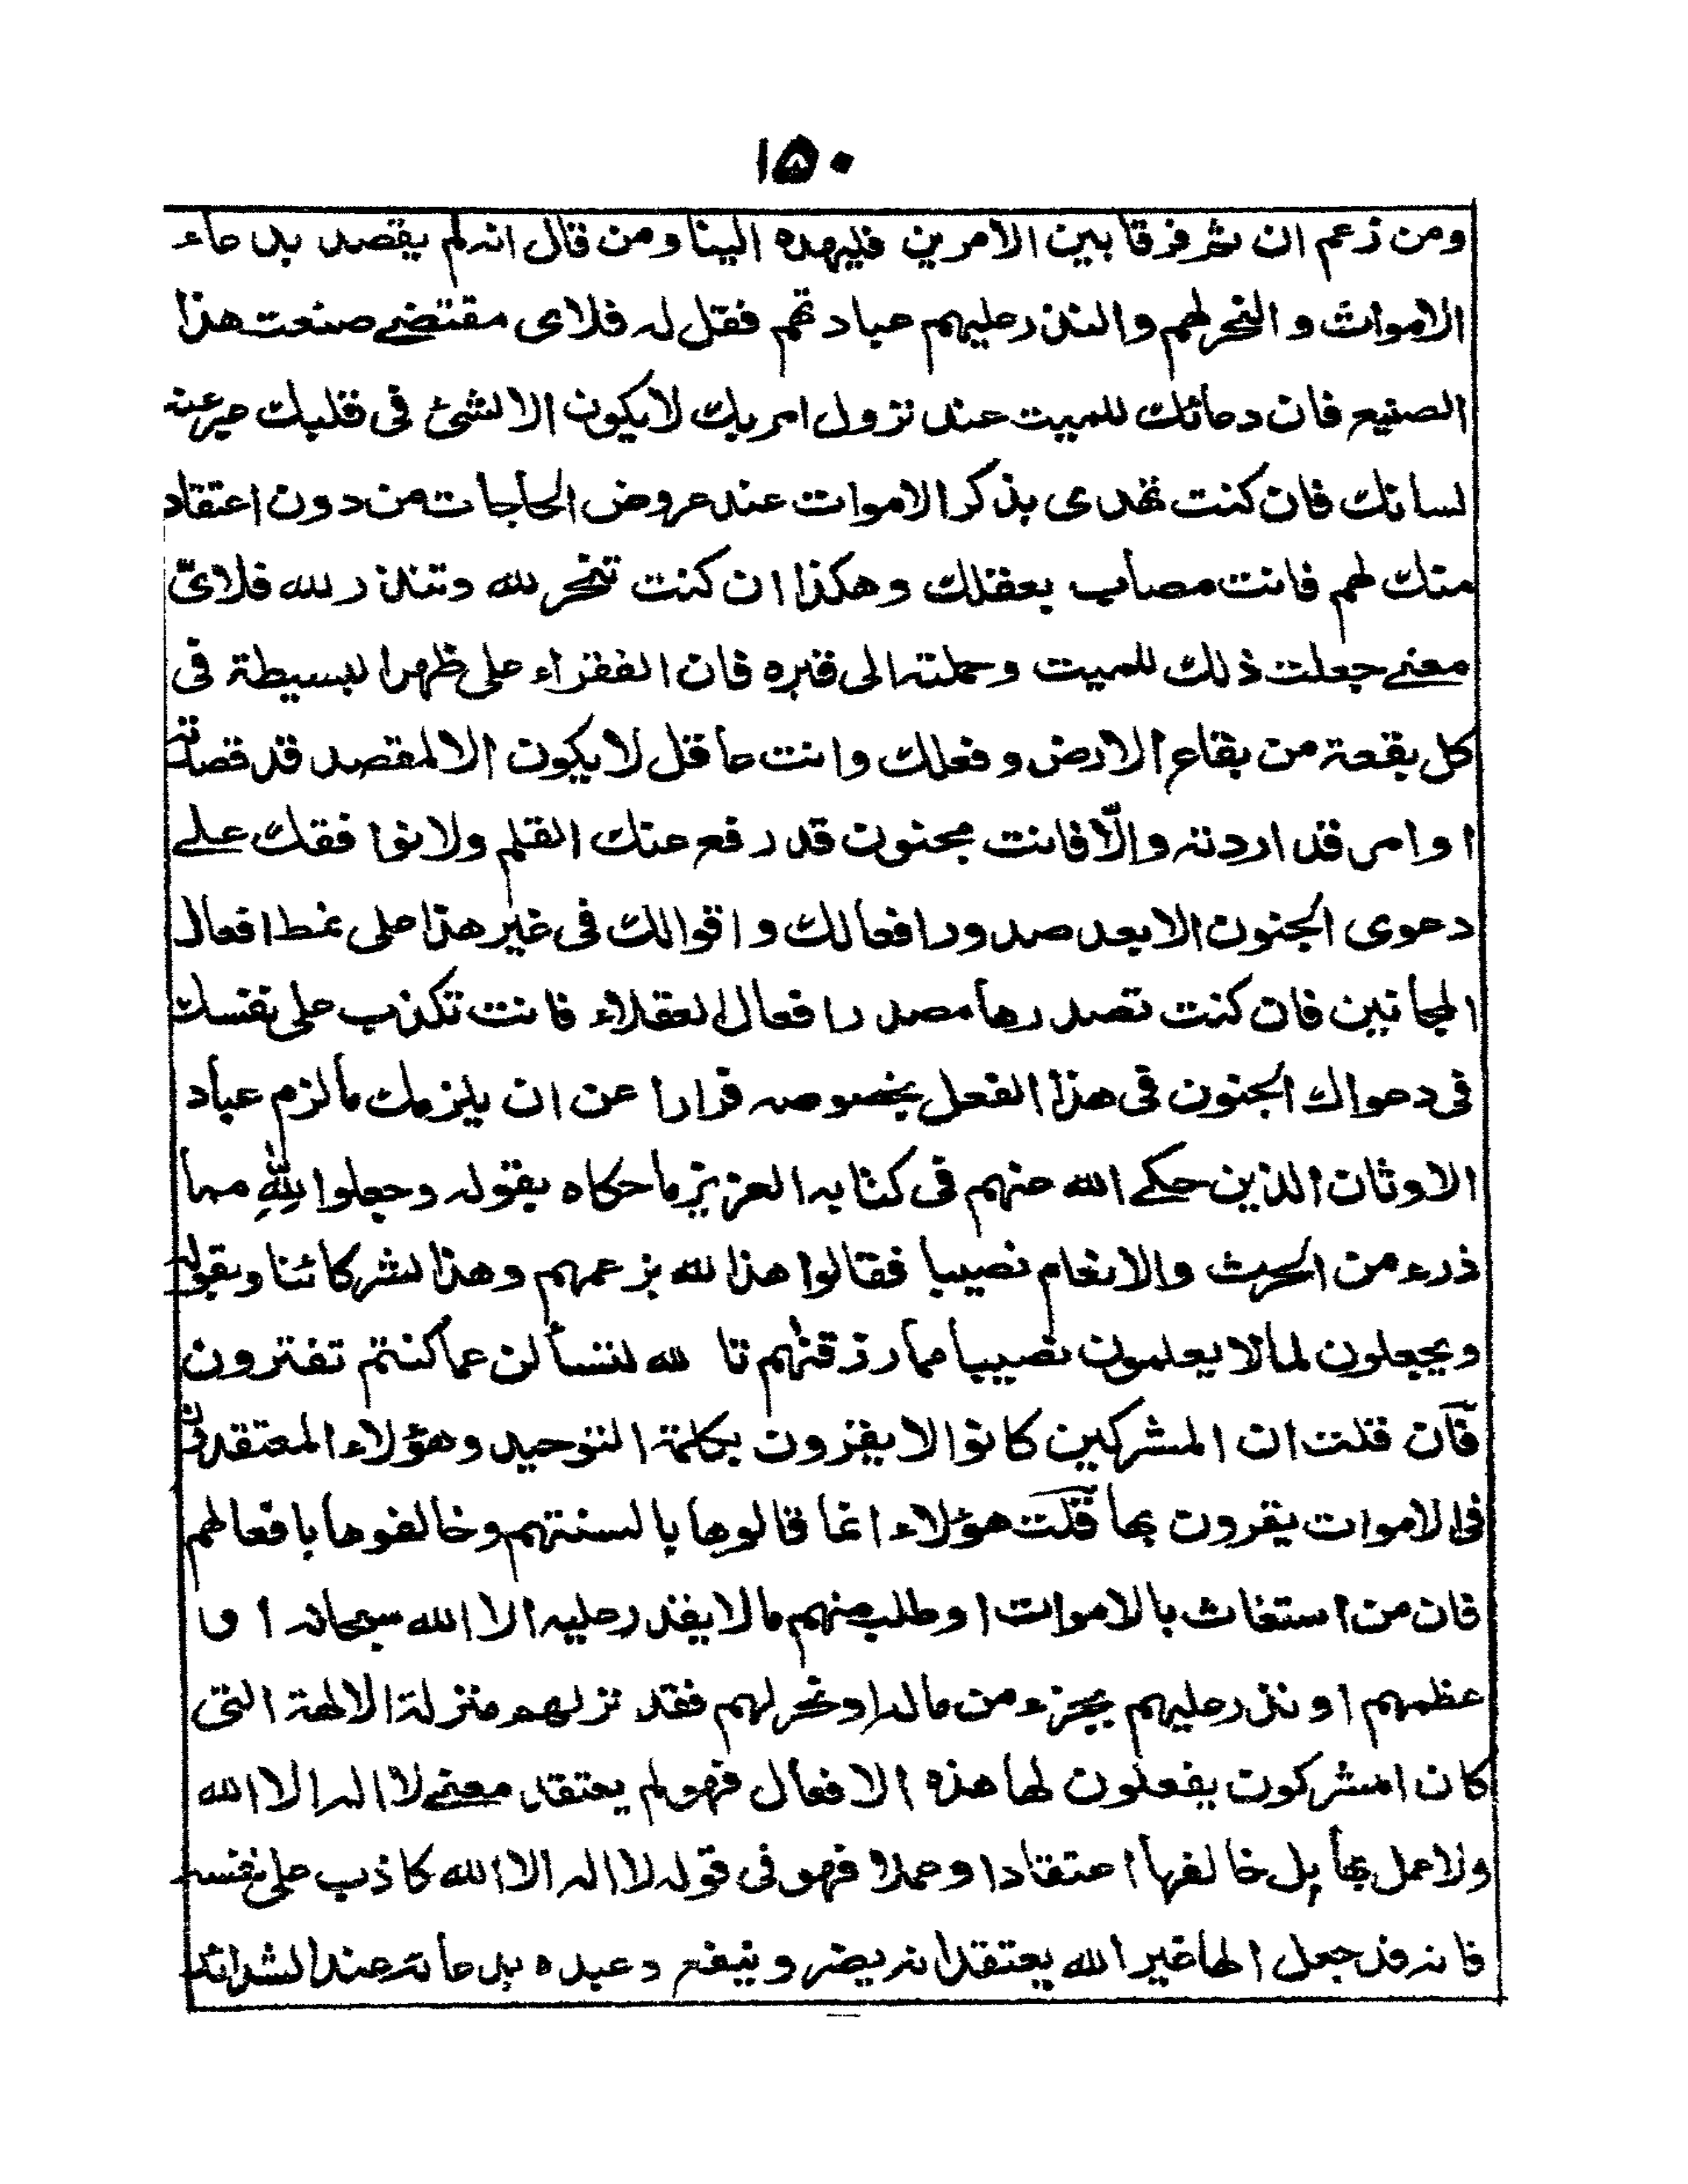 ١٥٠
ومن زعم ان ثم فرقا بين الامرين فليهده الينا ومن قال انه لم يقصد بدعاء
الاموات و النحر لهم والنذر عليهم عبادتهم فقل له فلاى مقتضے صنعت هذا
الصنيع فان دعائك للميت عند نزول امر بك لا يكون الا لشئ فى قلبك عبر عنه
لسانك فان كنت تهدى بذكر الاموات عند عروض الحاجات من دون اعتقاد
منك لهم فانت مصاب بعقلك وهكذا ان كنت تنحر لله وتنذر لله فلاىّ
معنے جعلت ذلك للميت وحملته الى قبره فان الفقراء على ظهر البسيطة فى
كل بقعة من بقاع الارض وفعلك وانت عاقل لا يكون الا لمقصد قد قصدته
او امر قد اردته والّا فانت مجنون قد رفع عنك القلم ولا نوافقك علے
دعوى الجنون الا بعد صدور افعالك و اقوالك فى غير هذا على نمط افعال
المجانين فان كنت تصدرها مصدر افعال العقلاء فانت تكذب على نفسك
فى دعواك الجنون فى هذا الفعل بخصوصه فرارا عن ان يلزمك مالزم عباد
الاوثان الذين حكے الله عنهم فى كتابه العزيز ماحكاه بقوله وجعلوا لِلّٰهِ مما
ذرء من الحرث والانعام نصيبا فقالوا هذا لله بزعمهم وهذا لشركائنا وبقوله
ويجعلون لما لا يعلمون نصيبا مما رزقنٰهم تا لله لتسألن عما كنتم تفترون
فآن قلت ان المشركين كانوا لا يقرون بكلمة التوحيد وهؤلاء المعتقدون
فى الاموات يقرون بها قلّت هؤلاء انما قالوها بالسنتهم وخالفوها بافعالهم
فان من استغاث بالاموات او طلب منهم مالا يقدر عليه الا الله سبحانه او
عظمهم او نذر عليهم بجزء من ماله او نحر لهم فقد نزلهم منزلة الالهة التى
كان المشركون يفعلون لها هذه الافعال فهو لم يعتقد معنے لا اله الا الله
ولا عمل بها بل خالفها اعتقادا وعملا فهو فى قوله لا اله الا الله كاذب على نفسه
فانه قد جعل الها غير الله يعتقد انه يضر وينفع وعبده بدعائه عند الشدائد